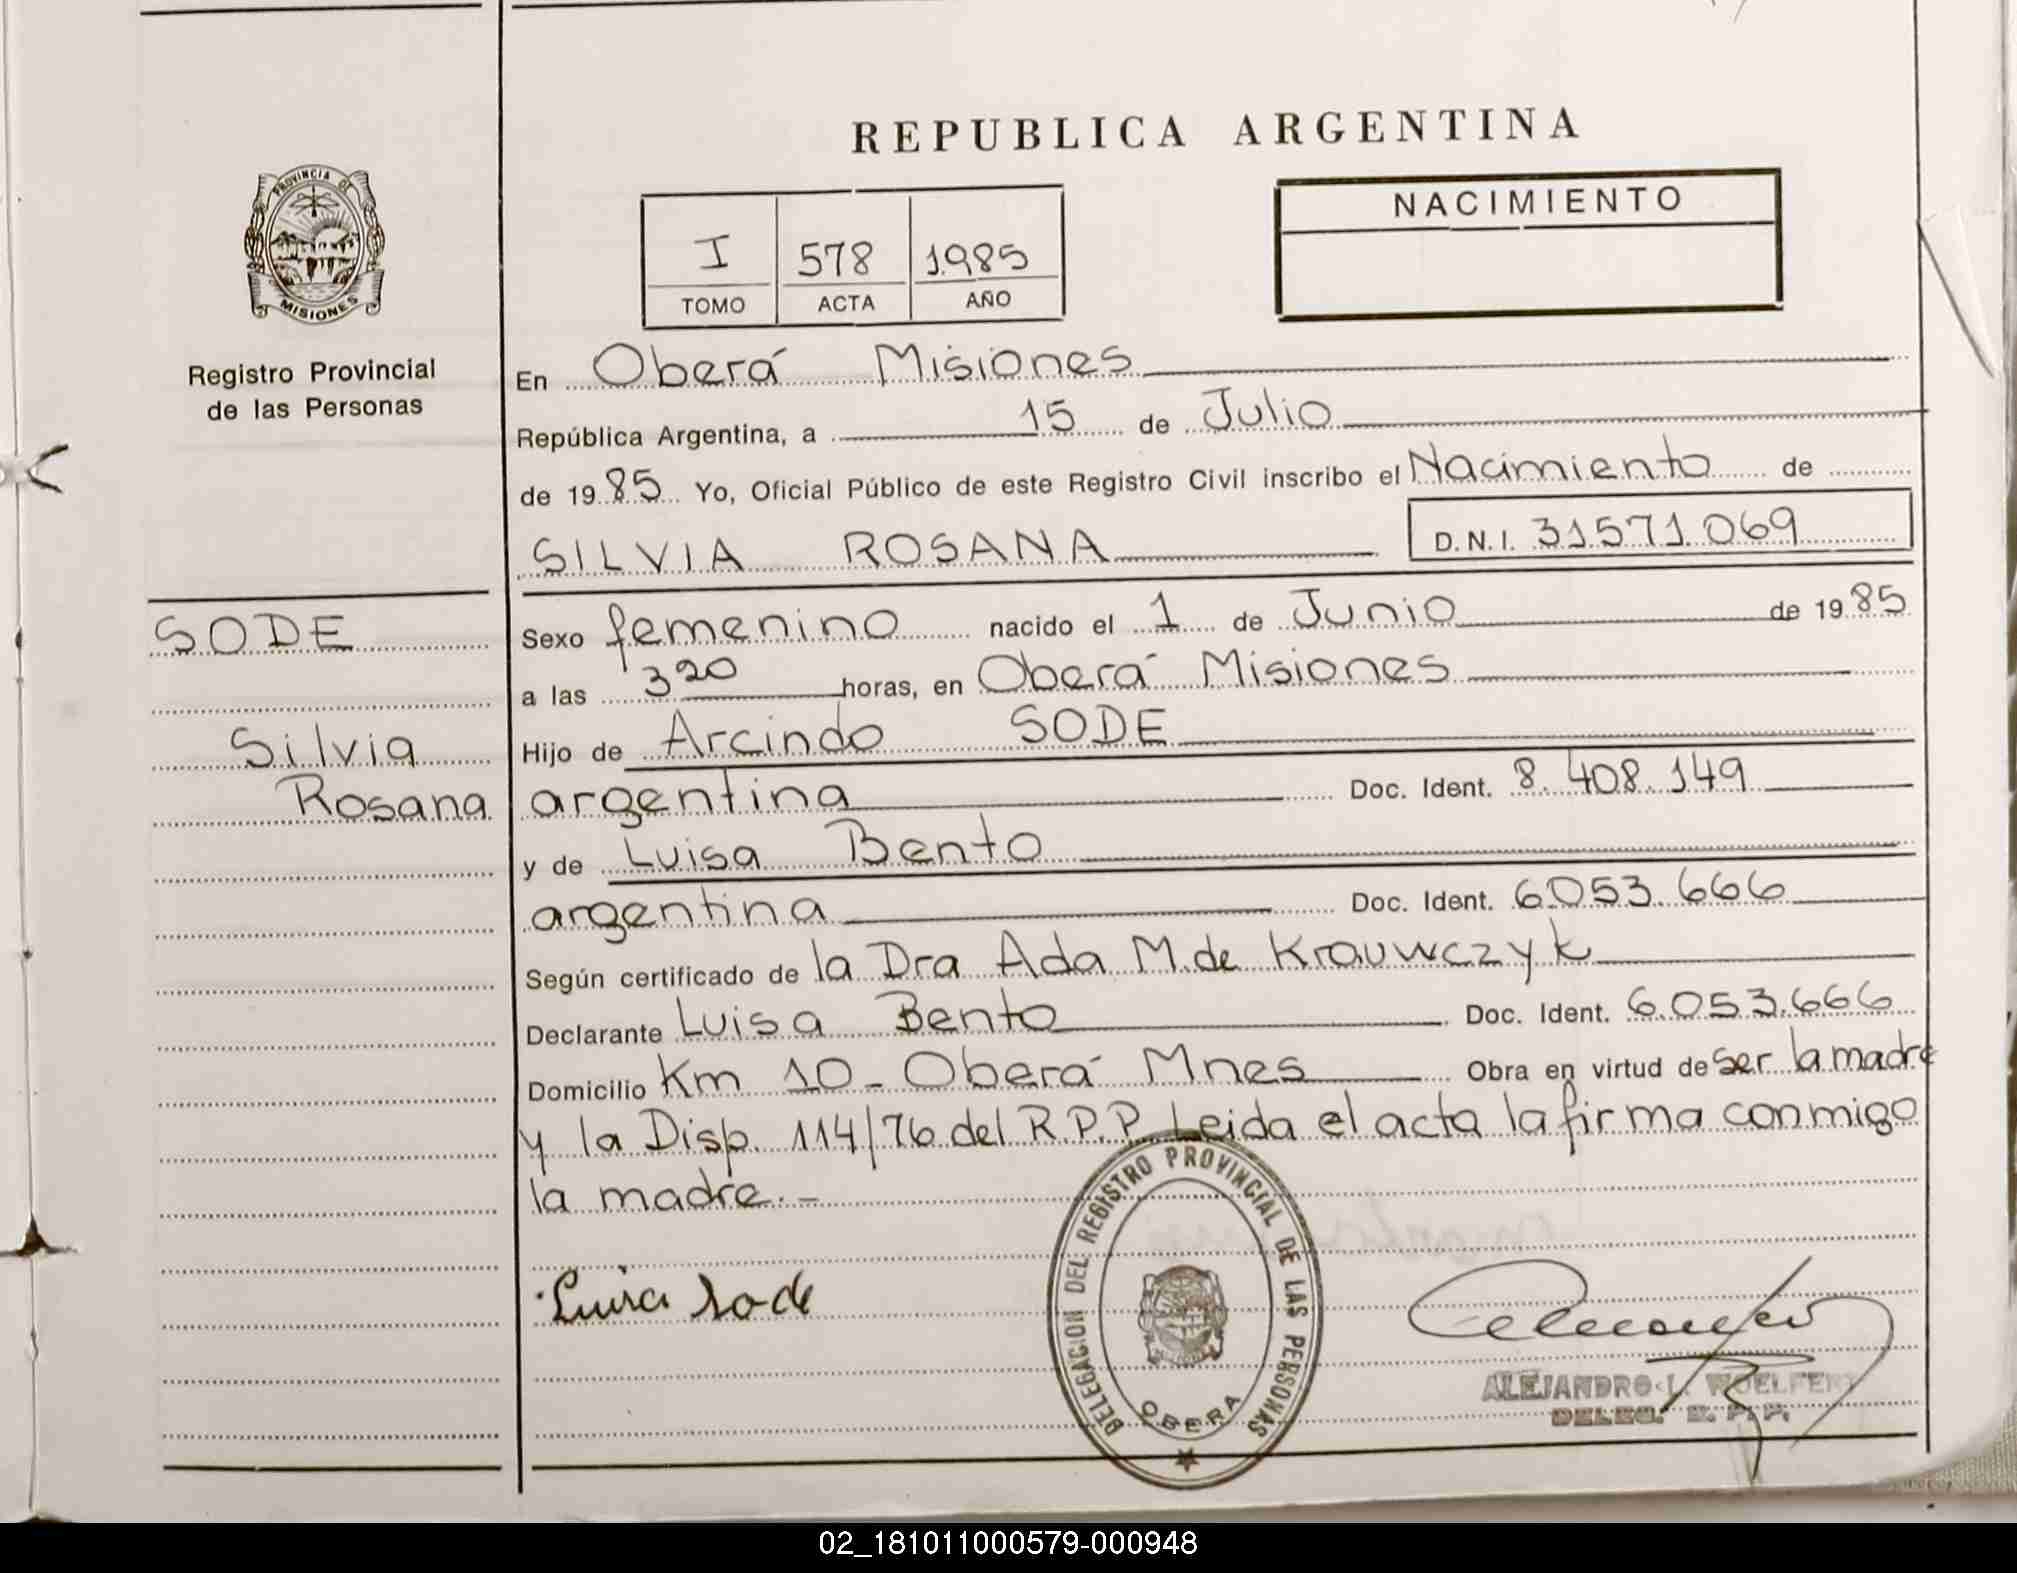 REPUBLICA ARGENTINA
PROVINCIA DE
MISIONES
Registro Provincial
de las Personas
I 578 1985
TOMO ACTA AÑO
NACIMIENTO
En Oberá Misiones
República Argentina, a 15 de Julio
de 1985 Yo, Oficial Público de este Registro Civil inscribo el Nacimiento de
SILVIA ROSANA D.N.I. 31.571.069
SODE
Silvia
Rosana
Sexo femenino nacido el 1 de Junio de 1985
a las 3 20 horas, en Oberá Misiones
Hijo de Arcindo SODE
argentina Doc. Ident. 8.408.149
y de Luisa Bento
argentina Doc. Ident. 6.053.666
Según certificado de la Dra Ada M. de Krauwczyk
Declarante Luisa Bento Doc. Ident. 6.053.666
Domicilio Km 10 - Oberá Mnes Obra en virtud de ser la madre
y la Disp. 114/76 del R.P.P. Leida el acta la firma conmigo
la madre.-
Luisa Sode
DELEGACION DEL REGISTRO PROVINCIAL DE LAS PERSONAS
OBERA
ALEJANDRO L. WOELFERT
DELEG. R. P. P.
02_181011000579-000948